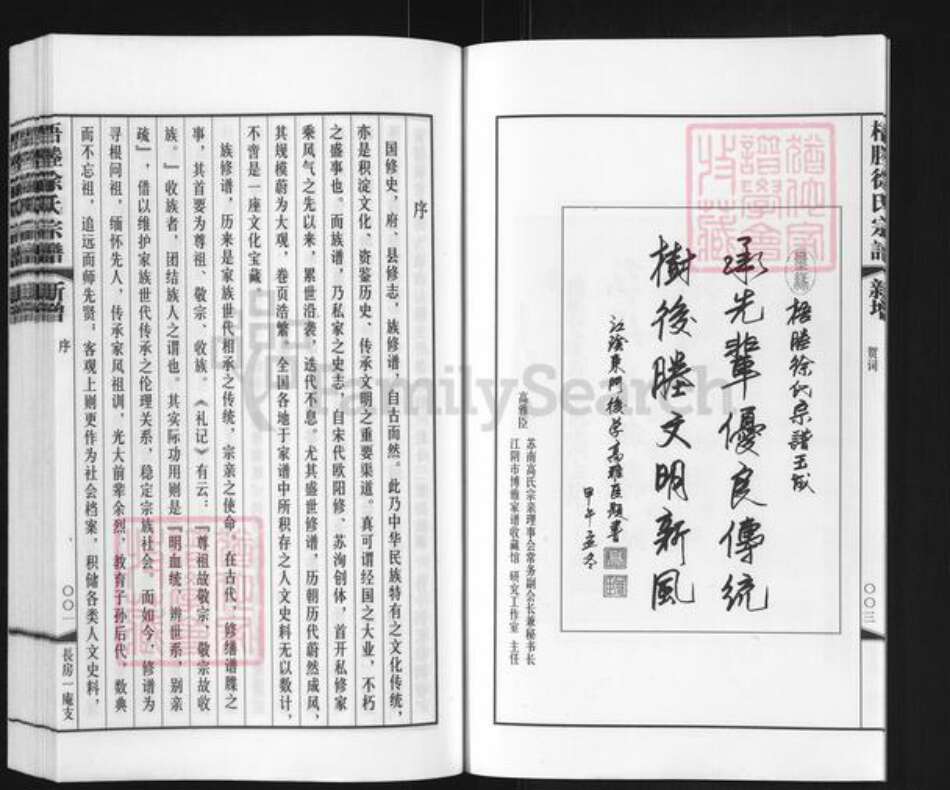 梧塍徐氏宗譜
新增
贺词
〇〇三
梧塍徐氏宗譜玉成
承先輩優良傳統
樹後塍文明新風
江陰東門後学高雅臣题書
甲午孟冬
高雅臣
苏南高氏宗亲理事会常务副会长兼秘书长
江阴市博雅家谱收藏馆 研究工作室 主任
序
国修史，府、县修志，族修谱，自古而然。此乃中华民族特有之文化传统，
亦是积淀文化、资鉴历史、传承文明之重要渠道。真可谓经国之大业，不朽
之盛事也。而族谱，乃私家之史志，自宋代欧阳修、苏洵创体，首开私修家
乘风气之先以来，累世沿袭，迭代不息。尤其盛世修谱，历朝历代蔚然成风，
其规模蔚为大观，卷页浩繁，全国各地于家谱中所积存之人文史料无以数计，
不啻是一座文化宝藏
族修谱，历来是家族世代相承之传统，宗亲之使命。在古代，修缮谱牒之
事，其首要为尊祖、敬宗、收族。《礼记》有云：『尊祖故敬宗，敬宗故收
族。』收族者，团结族人之谓也。其实际功用则是『明血统，辨世系，别亲
疏』，借以维护家族世代传承之伦理关系，稳定宗族社会。而如今，修谱为
寻根问祖，缅怀先人，传承家风祖训，光大前辈余烈，教育子孙后代，数典
而不忘祖，追远而师先贤。客观上则更作为社会档案，积储各类人文史料，
梧塍徐氏宗譜
新增
序
〇〇一
長房一庵支
FamilySearch